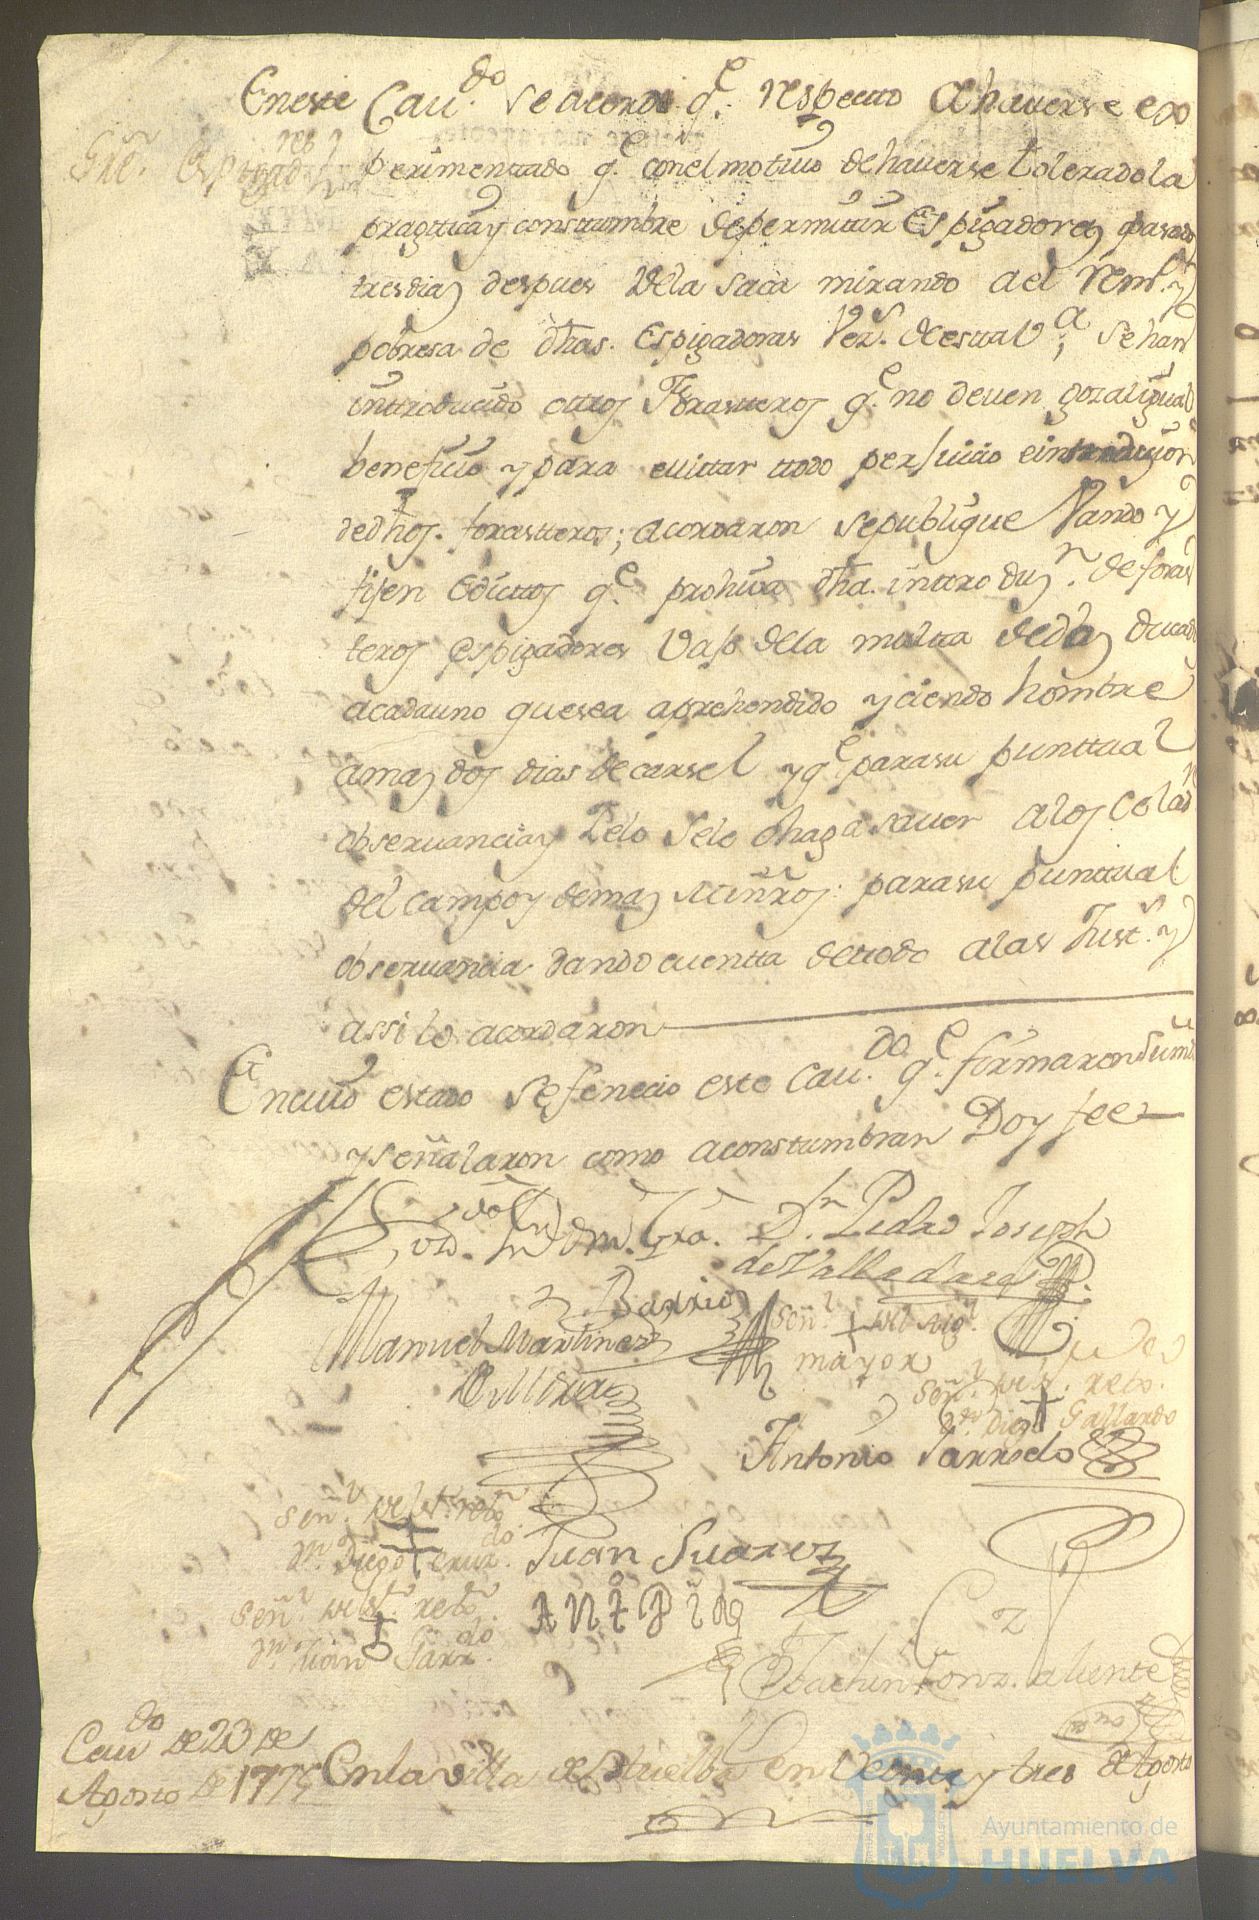 En este Cau.do se acordo q.e respecto a haverse ex
sre. espigadores
perimenttado q.e con el motivo de haverse tolerado la
practtica y consttumbre de permittir Espigadores pasado
tres dias despues de la saca mirando a el
pobresa de dhas. Espigadoras Vez.s de estta V.a; se han
inttroducido ottros Forastteros q.e no deven gozal igual
beneficio y para evittar ttodo perjuicio e introduzion
de dhos. forastteros; acordaron se publique Vando y
fijen Edicttos q.e prohiva dha. inttroduz.n de foras
teros espigadores vajo de la multta de dos ducad
a cada uno que sea aprehendido y ciendo hombre
a mas dos dias de carsel y q.e para su punttual
observancia y zelo se le haga saver a los Celad.s
del campo y demas Miñros: para su punttual
observancia dando cuentta de ttodo a las Just.s y
assi lo acordaron
En cuio estado se fenecio este Cau.do q.e firmaron sum.s
y señalaron como aconstumbran Doy fee
D.r Pedro Joseph
de Valledares
Barrios
Manuel Marttinez
señ.l del Alg.l
mayor
señ.l del s.r rexo.
Dieg Gallardo
Antonio Jarredo
señ.l del s.r rexo.r
D.n Diego Cruz.do
Juan Suarez
señ.l del s.r rexo.r
D.n Juan Garr.do
ANtPiĝ
Cau.do de 23 de
Agosto de 1775
En la villa de Huelba en veinte y tres de Agosto
Ayuntamiento de
HUELVA